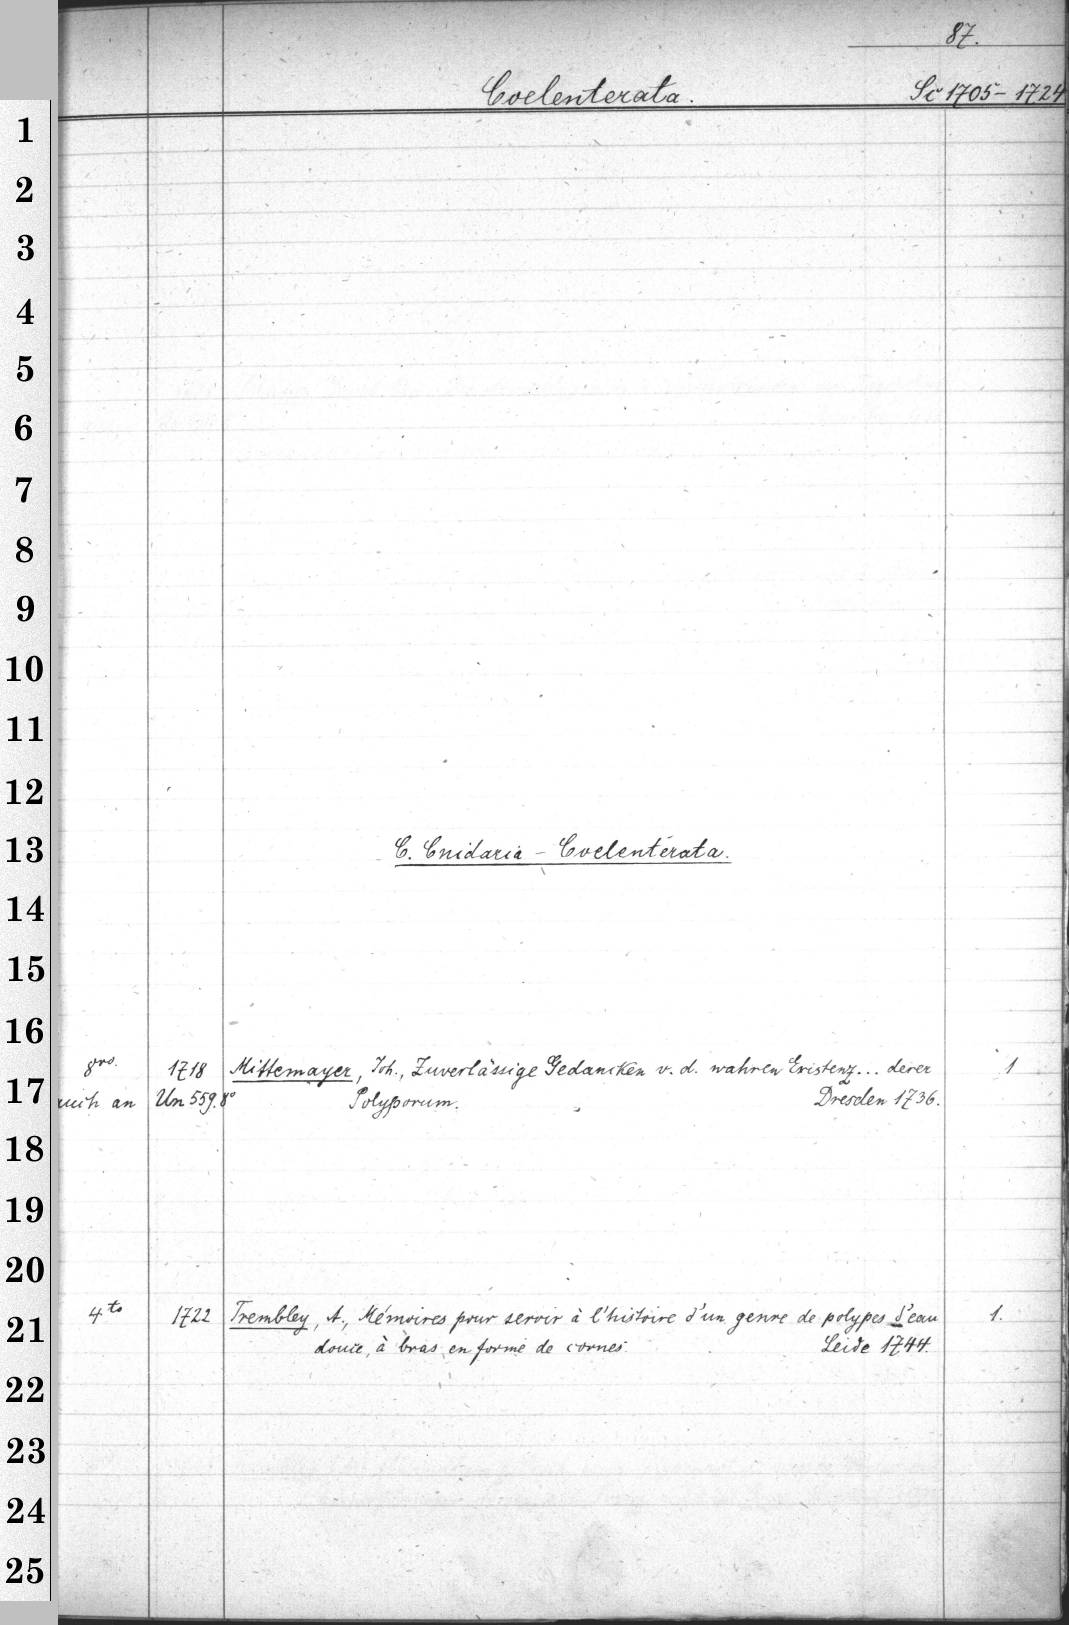 87.
Coelenterata. Sc 1705-1724
1
2
3
4
5
6
7
8
9
10
11
12
C. Cnidaria - Coelenterata.
13
14
15
16
8vo. 1718 Mittemayer, Joh., Zuverlässige Gedancken v. d. wahren Existenz... derer 1
17
an Um 559.8° Polyporum. Dresden 1736.
18
19
20
4to 1722 Trembley, A., Mémoires pour servir à l'histoire d'un genre de polypes d'eau 1.
21
douce, à bras en forme de cornes. Leide 1744.
22
23
24
25